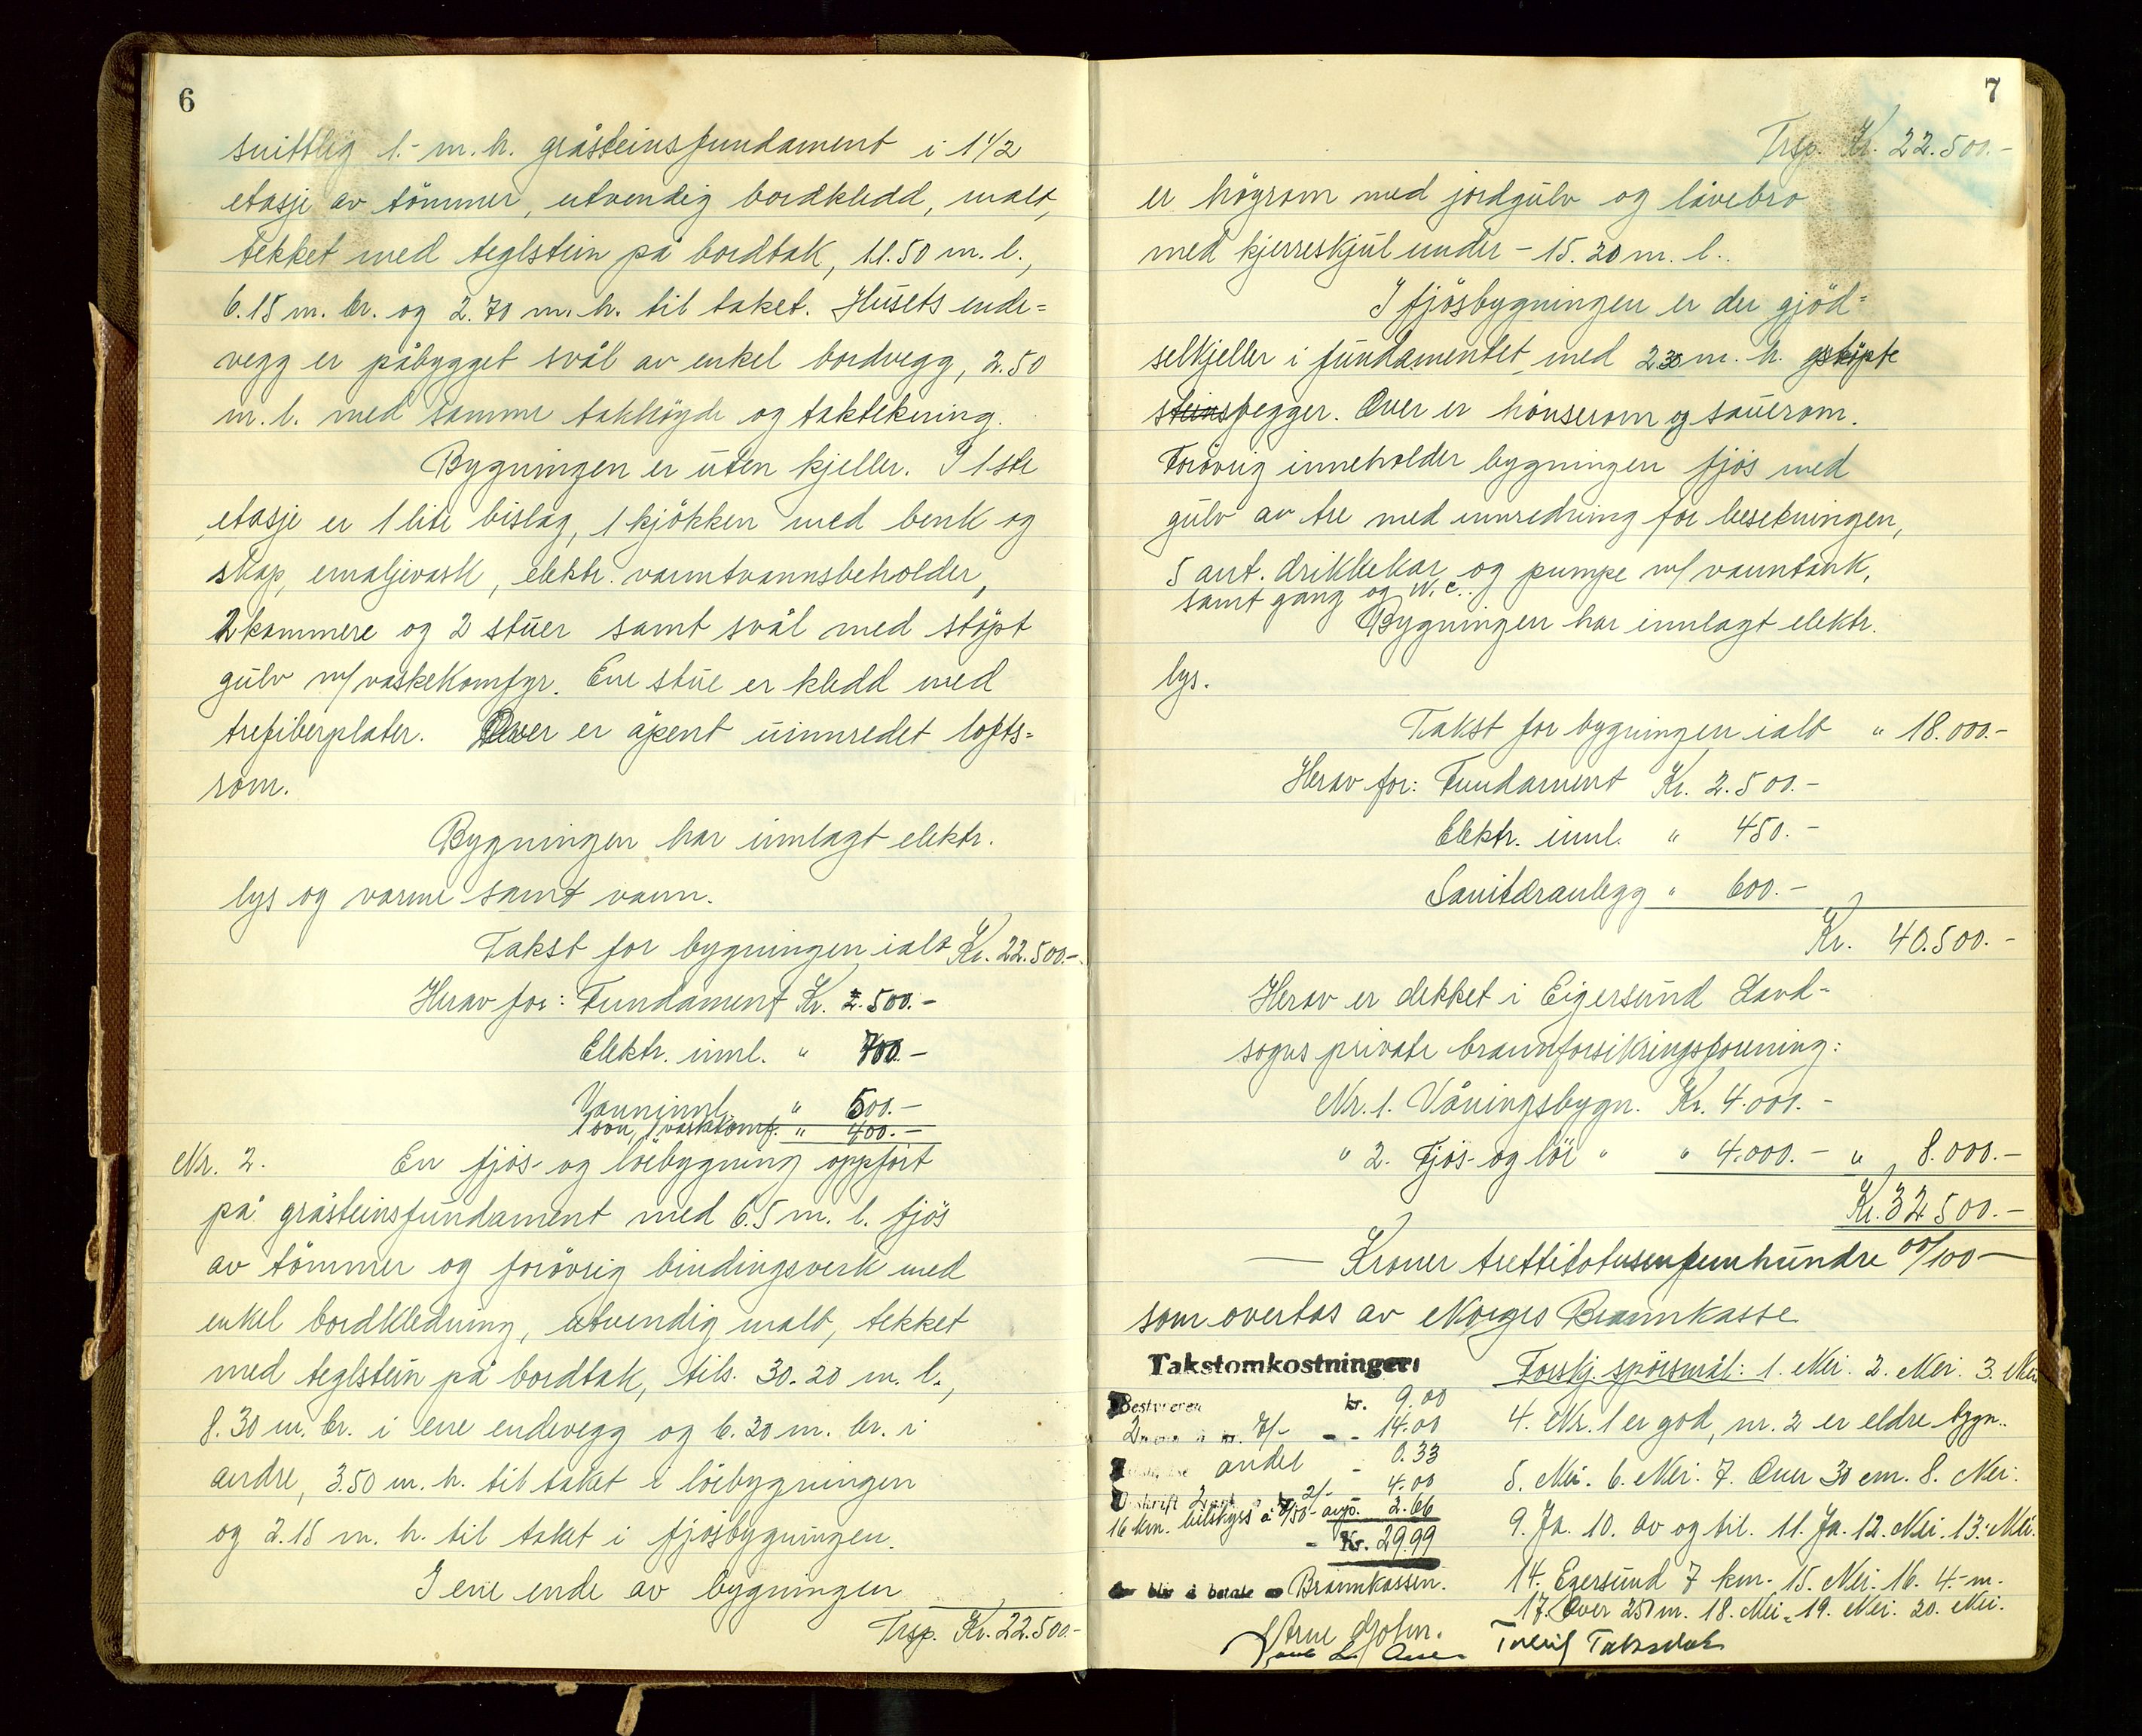 6
snittlig 1.- m. h. gråsteinsfundament i 1 1/2
etasje av tömmer, utvendig bordkledd, malt,
tekket med teglstein på bordtak, 11.50 m. l.,
6.15 m. br. og 2.70 m. h. til taket. Husets ende=
vegg er påbygget svål av enkel bordvegg, 2.50
m. l. med samme takhöyde og taktekning.
Bygningen er uten kjeller. I 1ste
etasje er 1 lite bislag, 1 kjökken med benk og
skap, emaljevask, elektr. varmtvannsbeholder,
2 kammere og 2 stuer samt svål med stöpt
gulv m/vaskekomfyr. Ene stue er kledd med
trefiberplater. Over er åpent uinnredet lofts=
rom.
Bygningen har innlagt elektr.
lys og varme samt vann.
Takst for bygningen ialt Kr. 22.500.-
Herav for: Fundament Kr. 2.500.-
Elektr. innl. " 700.-
Vanninnl. " 500.-
1 ovn, 1 vaskekomf. " 400.-
Nr. 2. En fjös- og löebygning oppfört
på gråsteinsfundament med 6.5 m. l. fjös
av tömmer og forövrig bindingsverk med
enkel bordkledning, utvendig malt, tekket
med teglstein på bordtak, tils. 30.20 m. l.,
8.30 m. br. i ene endevegg og 6.20 m. br. i
andre, 3.50 m. h. til taket i löebygningen
og 2.15 m. h. til taket i fjösbygningen.
I ene ende av bygningen
Trsp. Kr. 22.500.-
7
Trsp. Kr. 22.500.-
er höyrom med jordgulv og låvebro
med kjerreskjul under - 15.20 m. l..
I fjösbygningen er der gjöd=
selkjeller i fundamentet med 2.30 m. h. støpte
steinsvegger. Over er hönserom og sauerom.
Forövrig inneholder bygningen fjös med
gulv av tre med innredning for besetningen,
5 aut. drikkekar og pumpe m/ vanntank,
samt gang og W.C..
Bygningen har innlagt elektr.
lys.
Takst for bygningen ialt " 18.000.-
Herav for: Fundament Kr. 2.500.-
Elektr. innl. " 450.-
Sanitæranlegg " 600.-
Kr. 40.500.-
Herav er dekket i Eigersund Land=
sogns private brannforsikringsforening:
Nr. 1. Våningsbygn. Kr. 4.000.-
" 2. Fjös- og löe " " 4.000.- " 8.000.-
Kr. 32.500.-
— Kroner trettitotusenfemhundre 00/100 —
som overtas av Norges Brannkasse
Takstomkostninger:
Bestyreren kr. 9.00
2 à kr. 7/- - 14.00
andel - 0.33
2 2/- 4.00
16 km. bilskyss à avg. 2.66
Kr. 29.99
å betale Brannkassen.
Forskj. spörsmål: 1. Nei. 2. Nei. 3. Nei
4. Nr. 1 er god, nr. 2 er eldre bygn..
5. Nei. 6. Nei. 7. Over 30 cm. 8. Nei.
9. Ja. 10. Av og til. 11. Ja. 12. Nei. 13. Nei.
14. Egersund 7 km. 15. Nei. 16. 4.- m.
17. Over 250 m. 18. Nei. 19. Nei. 20. Nei.
Arne